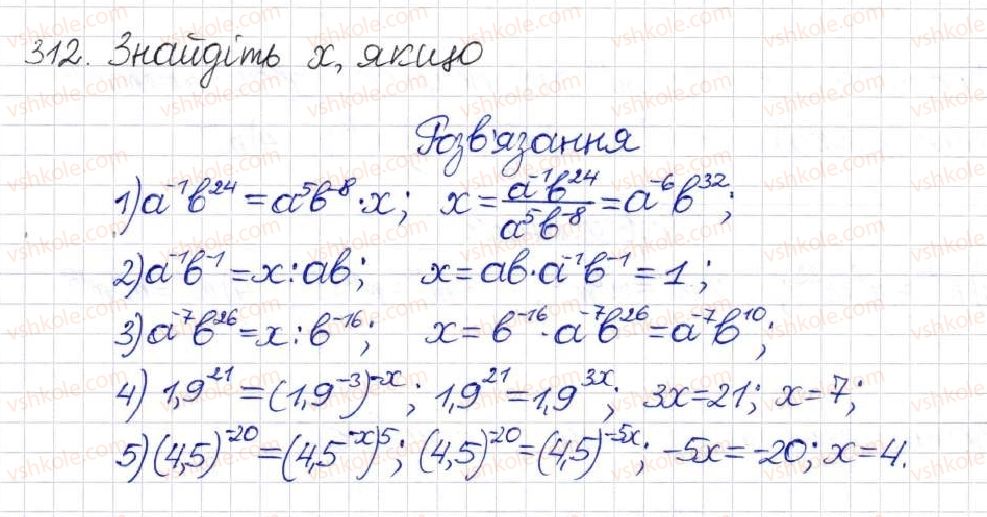 312. Знайдіть x, якщо
Розв'язання
1) a⁻¹b²⁴ = a⁵b⁻⁸ · x; x = a⁻¹b²⁴ / a⁵b⁻⁸ = a⁻⁶b³²;
2) a⁻¹b⁻¹ = x : ab; x = ab · a⁻¹b⁻¹ = 1;
3) a⁻⁷b²⁶ = x : b⁻¹⁶; x = b⁻¹⁶ · a⁻⁷b²⁶ = a⁻⁷b¹⁰;
4) 1,9²¹ = (1,9⁻³)⁻ˣ; 1,9²¹ = 1,9³ˣ; 3x = 21; x = 7;
5) (4,5)⁻²⁰ = (4,5⁻ˣ)⁵; (4,5)⁻²⁰ = (4,5)⁻⁵ˣ; -5x = -20; x = 4.
vshkole.com